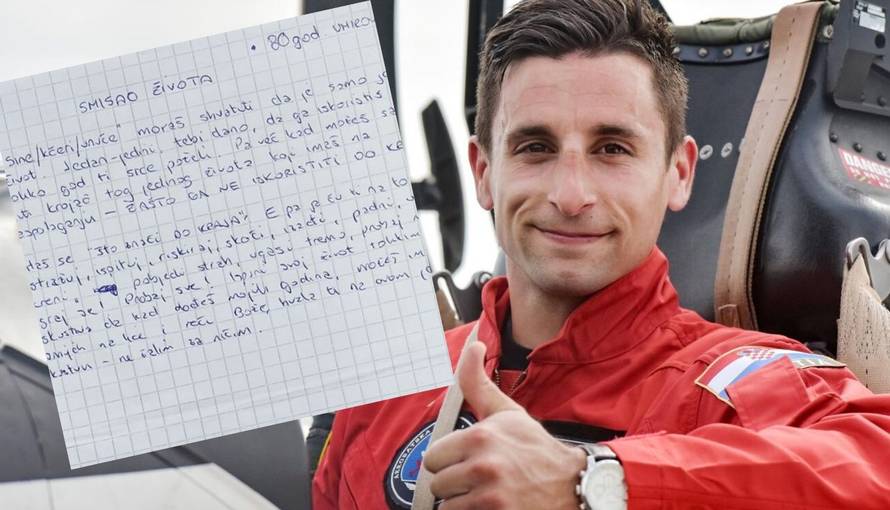 • 80 god UMIRO
SMISAO ŽIVOTA
Sine/kćeri/unuče" moraš shvatiti da je samo je
život. Jedan-jedini tebi dano, da ga iskoristiš
koliko god ti srce poželi. Pa već kad možeš sa
krojač tog jednog života koji imaš na
raspolaganju - ZAŠTO GA NE ISKORISTITI DO KR
se "što znači DO KRAJA". E pa je ću ti na to
istražuj, ispituj, riskiraj, skoči, izleti, padni,
pobjedi strah, ugasi tremu, proživi
Probaj sve i ispuni svoj život tolikim
iskustva da kad dođeš mojih godina, možeš im
na lice i reći Bože, hvala ti na ovom
- ne žalim za ničim.
DANGER